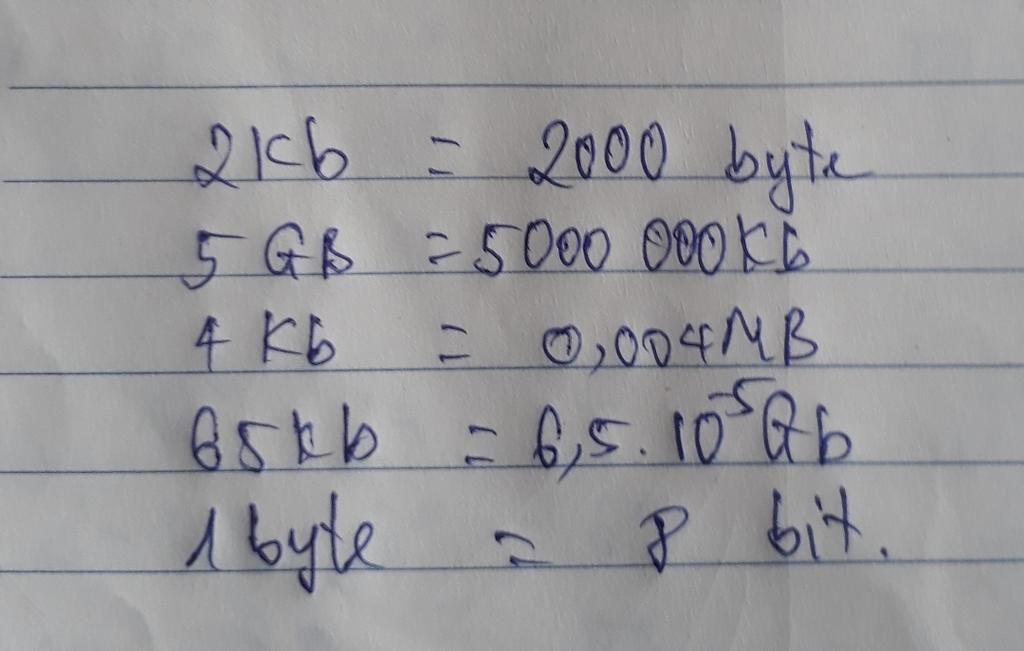 2Kb = 2000 byte
5 GB = 5000 000Kb
4 Kb = 0,004MB
65kb = 6,5.10⁻⁵Gb
1 byte = 8 bit.